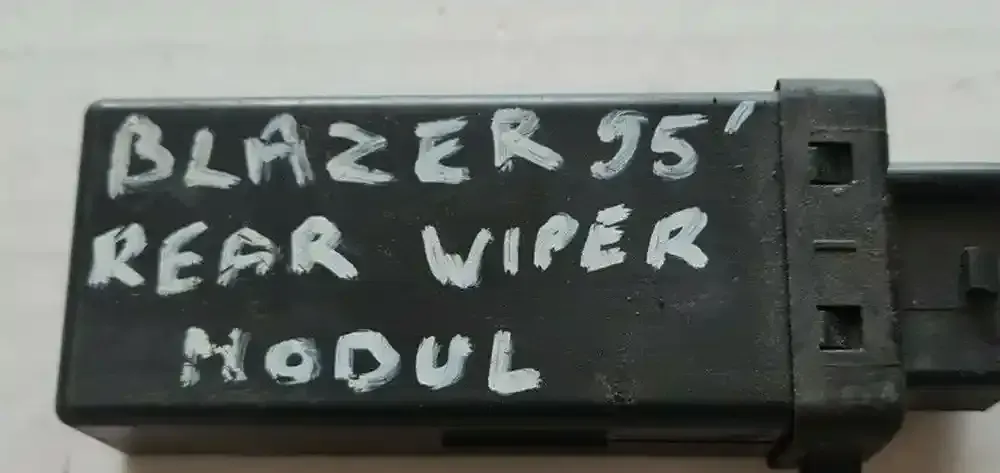 BLAZER 95'
REAR WIPER
MODUL